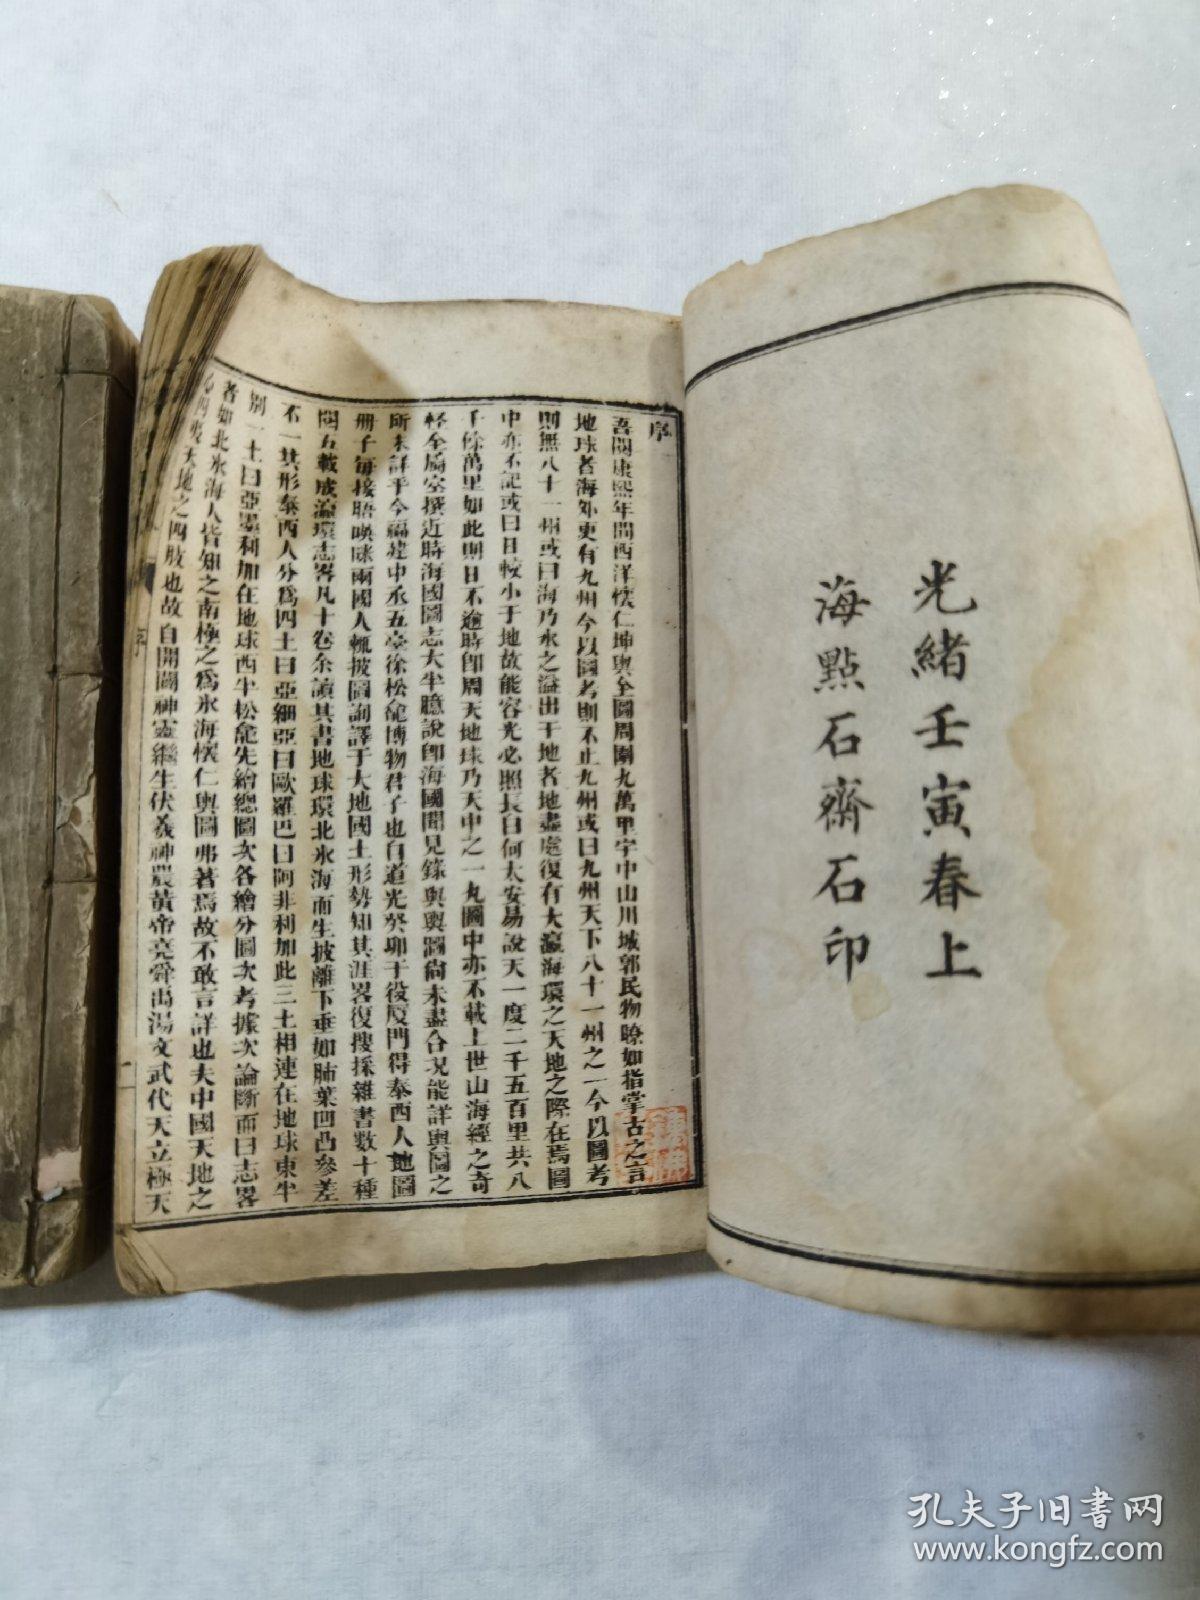 光緒壬寅春上
海點石齋石印
序
吾閱康熙年間西洋懷仁坤輿全圖周圍九萬里宇中山川城郭民物瞭如指掌古之言
地球者海外更有九州今以圖考則不止九州或曰九州天下八十一州之一今以圖考
則無八十一州或曰海乃水之溢出于地者地盡處復有大瀛海環之天地之際在焉圖
中亦不記或曰日較小于地故能容光必照長白何太安易說天一度二千五百里共八
千餘萬里如此則日不逾時卽周天地球乃天中之一丸圖中亦不載上世山海經之奇
怪全屬空撰近時海國圖志大半臆說卽海國聞見錄與輿圖尙未盡合況能詳輿圖之
所未詳乎今福建中丞五臺徐松龕博物君子也自道光癸卯于役厦門得泰西人地圖
册子每接晤喚咪兩國人輒披圖詢譯于大地國土形勢知其涯畧復搜採雜書數十種
閱五載成瀛環志畧凡十卷余讀其書地球環北氷海而生披離下垂如肺葉凹凸參差
不一其形泰西人分爲四土曰亞細亞曰歐羅巴曰阿非利加此三土相連在地球東半
別一土曰亞墨利加在地球西半松龕先繪總圖次各繪分圖次考據次論斷而曰志畧
者如北氷海人皆知之南極之爲氷海懷仁輿圖弗著焉故不敢言詳也夫中國天地之
心四夷天地之四肢也故自開闢神靈繼生伏羲神農黃帝堯舜禹湯文武代天立極天
序
一
孔夫子旧书网
www.kongfz.com